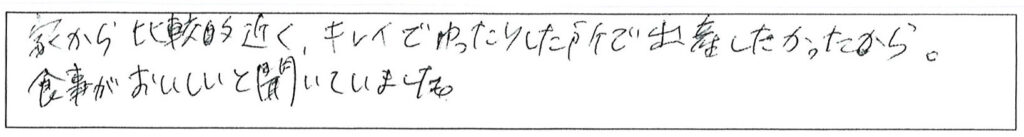 家から比較的近く、キレイでゆったりした所で出産したかったから。
食事がおいしいと聞いていました。